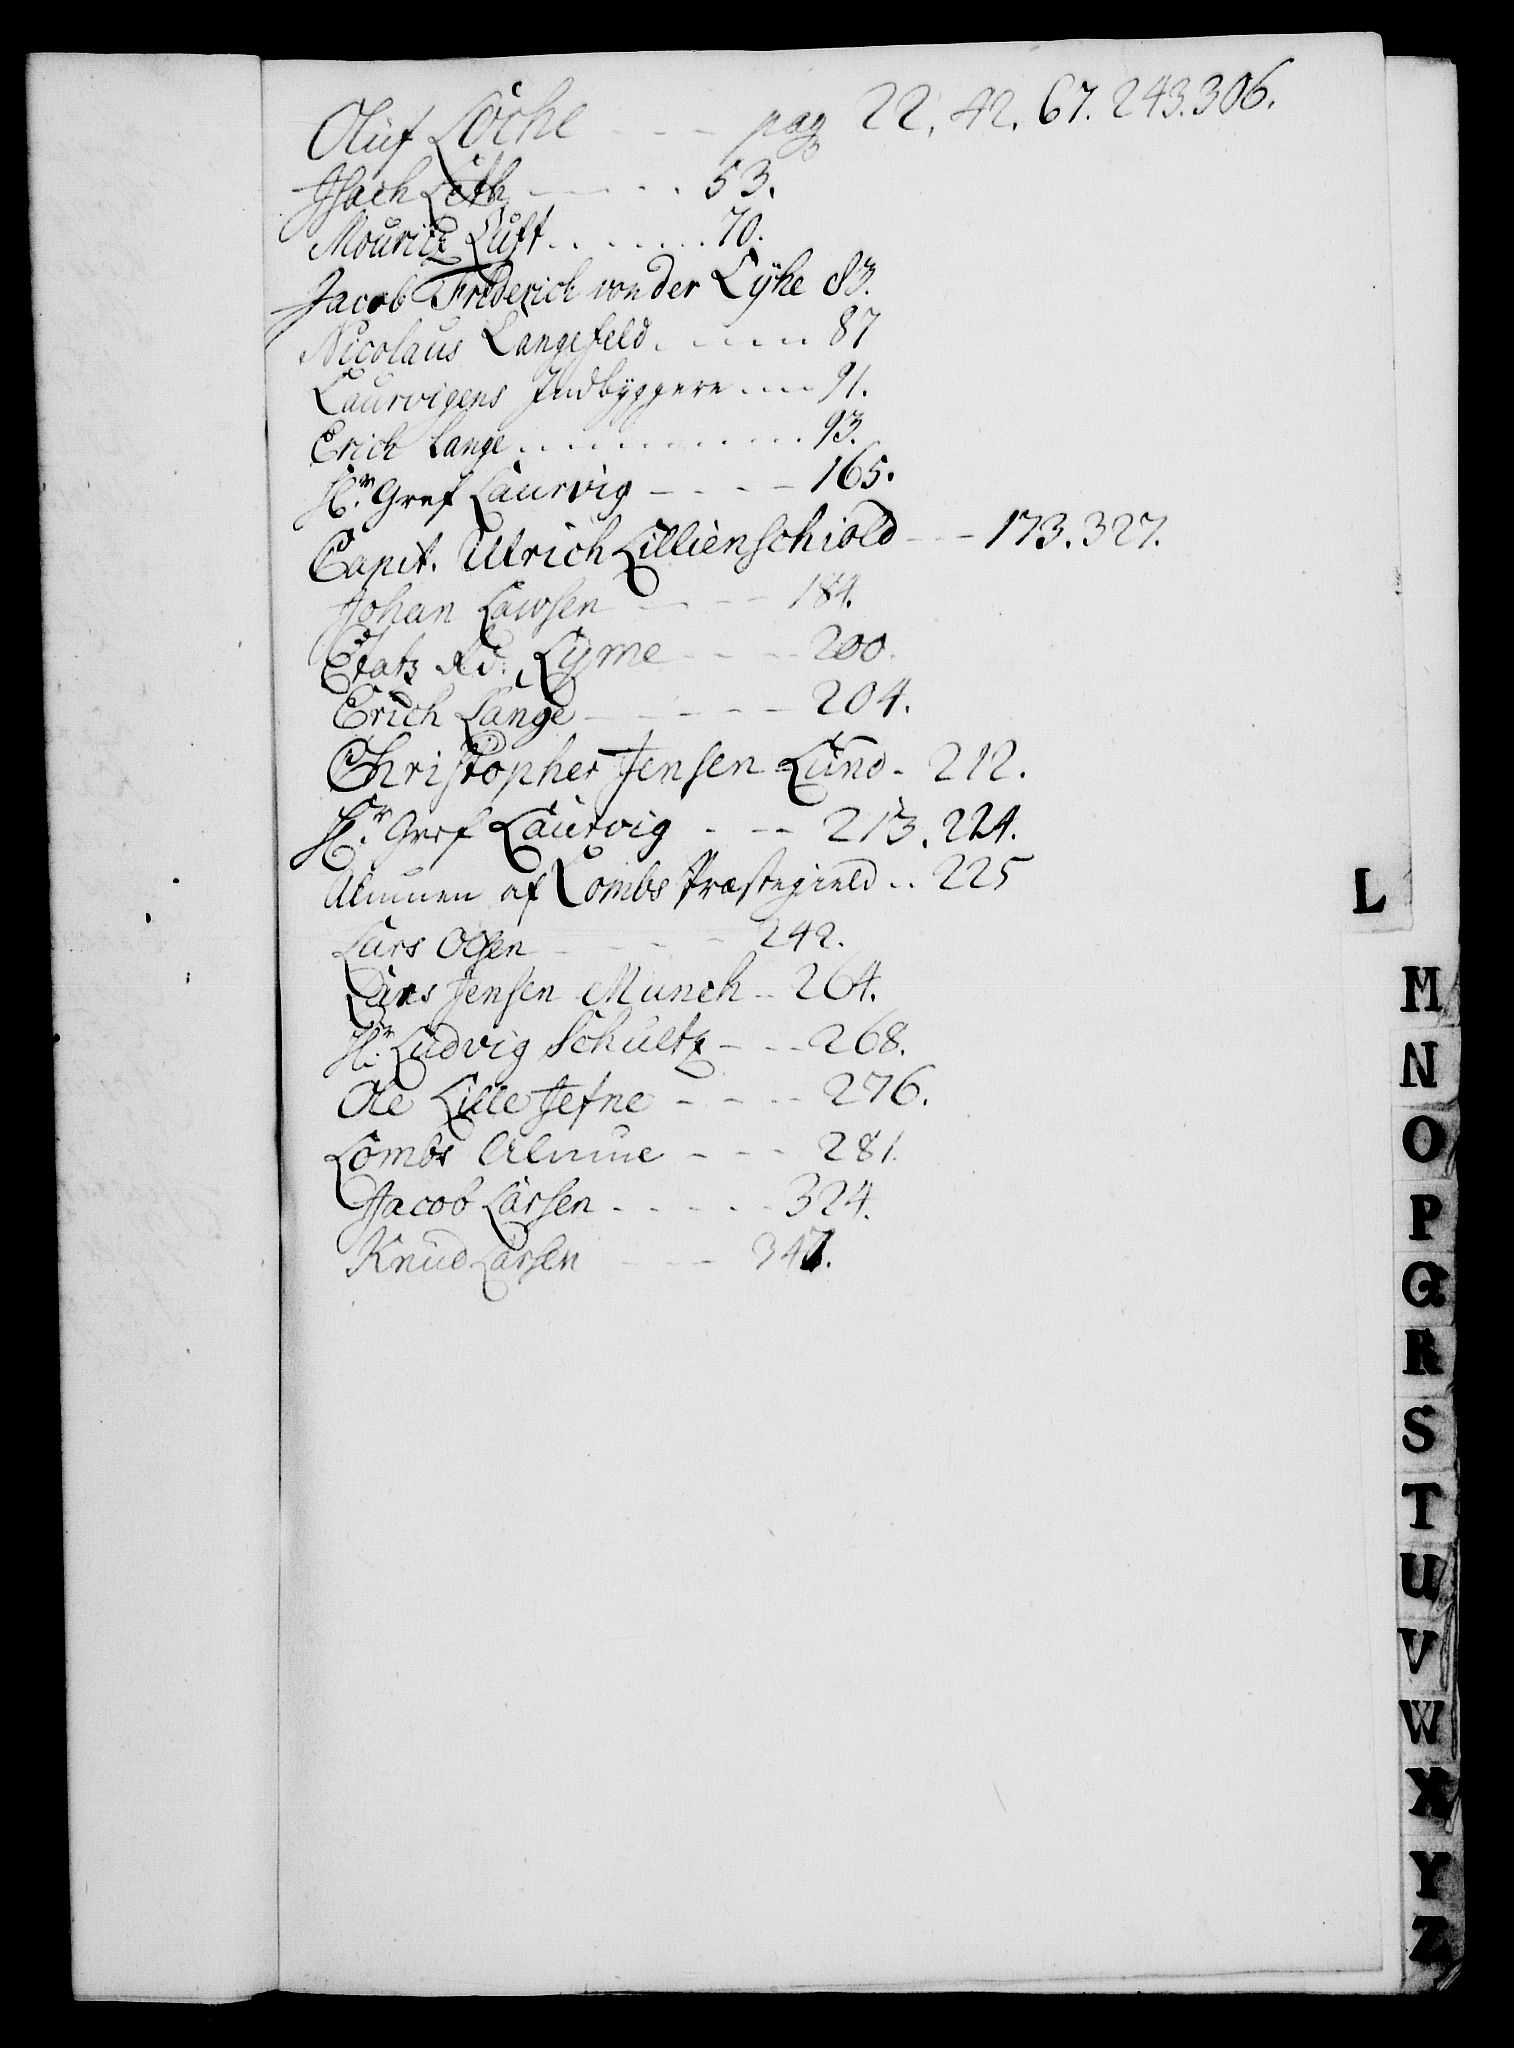 Oluf Löche - - - pag 22. 42. 67. 243. 306.
Isach Löth - - - - 53.
Mouritz Luft . . . . . . . 70.
Jacob Friderich von der Lÿhe 83.
Nicolaus Langefeld . . . . . 87
Laurvigens Indbÿggere . . . . 91.
Erich Lange . . . . . . . . . . 93.
Hr. Gref Laurvig - - - - 165.
Capit. Ulrich Lillienschiold - - - 173. 327.
Johan Lawsen - - - - 184.
Etatz Rd. Lyme - - - - 200.
Erich Lange - - - - - 204.
Christopher Jensen Lund - 212.
Hr. Gref Laurvig - - - 213. 224.
Almuen af Lombs Præstegield . . 225
Lars Olsen - - - - - 242.
Lars Jensen Munch - - 264.
Hr. Ludvig Schultz - - - 268.
Ole Lille Jefne - - - - 276.
Lombs Almue - - - 281.
Jacob Larsen - - - - - 324.
Knud Larsen - - - 347.
L
M
N
O
P
Q
R
S
T
U
V
W
X
Y
Z